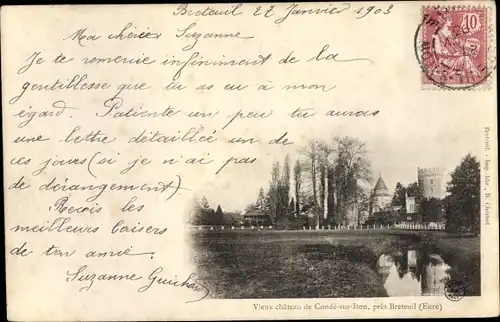 Breteuil 27 Janvier 1903
Ma chère Suzanne
Je te remercie infiniment de la
gentillesse que tu as eu à mon
égard. Patiente un peu tu auras
une lettre détaillée un de
ces jours (si je n'ai pas
de dérangement)
Reçois les
meilleurs baisers
de ton amie.
Suzanne
10
Breteuil. - Imp.
Vieux château de Condé-sur-Iton, près Breteuil (Eure)